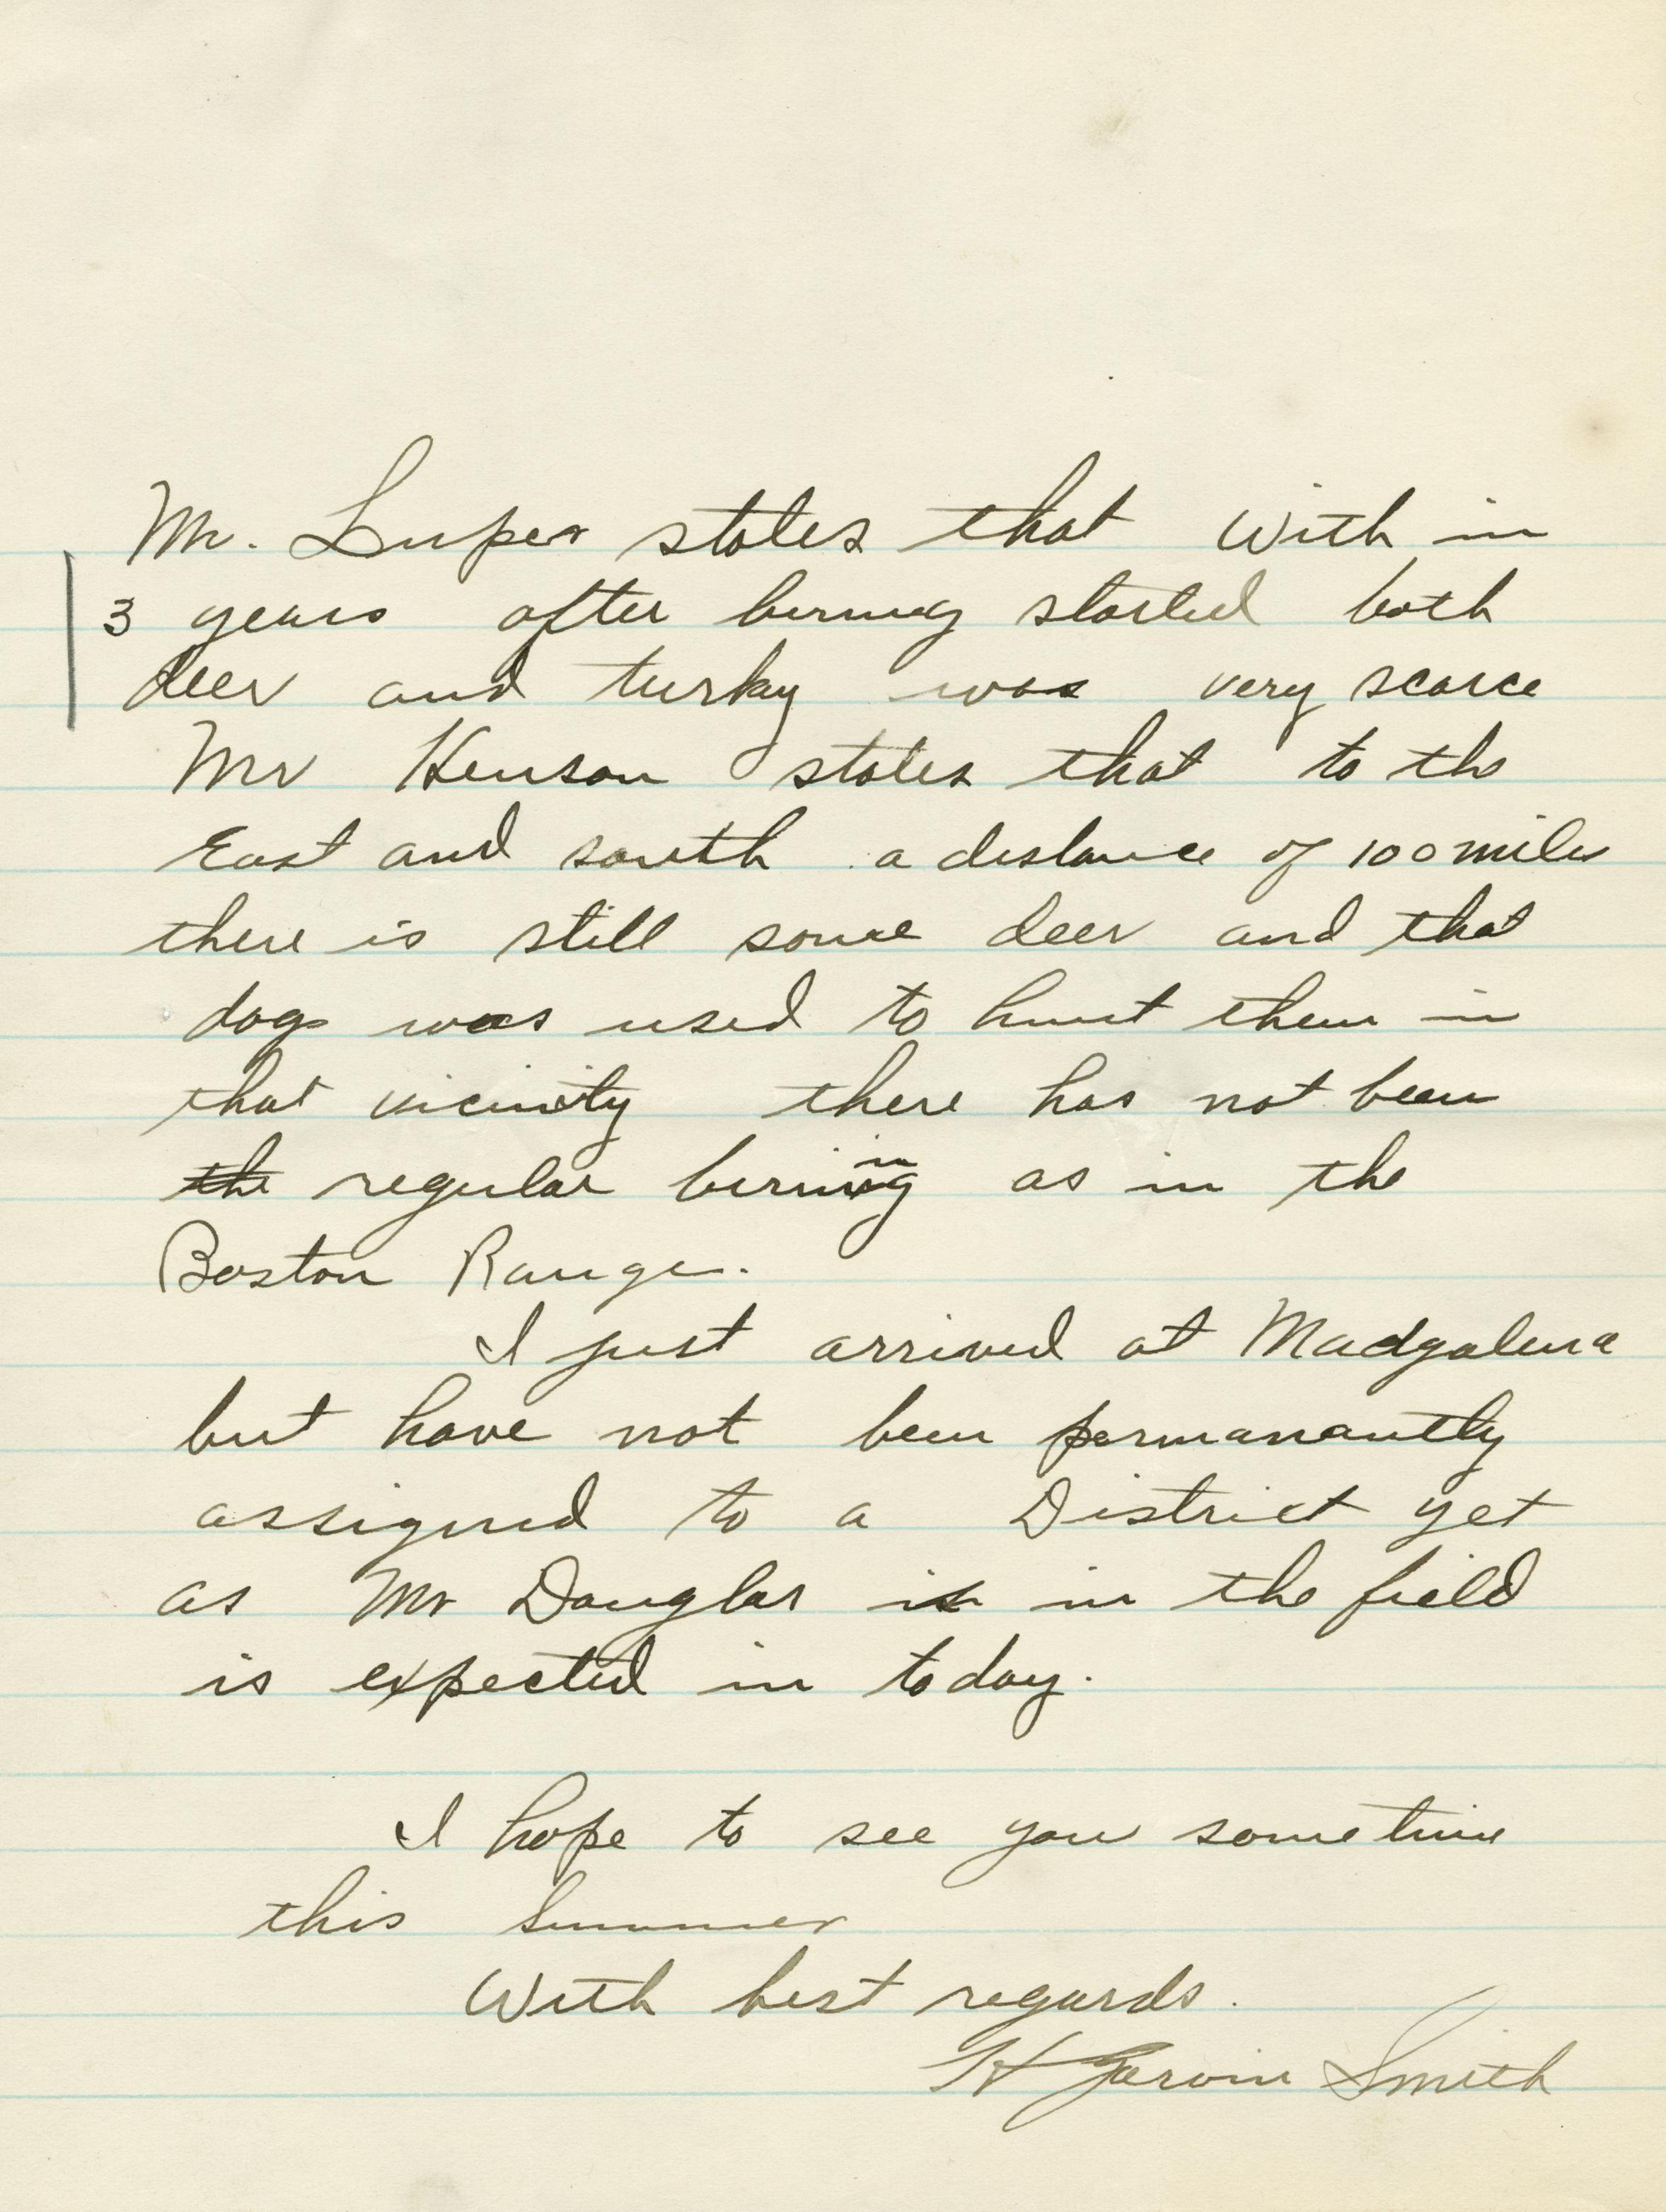 Mr. Luper states that With in
3 years after burning started both
deer and turky was very scarce
Mr Henson states that to the
East and south a distance of 100 miles
there is still some deer and that
dogs was used to hunt them in
that vicinity there has not been
the regular burning as in the
Boston Range.
I just arrived at Madgalena
but have not been permanantly
assigned to a District yet
as Mr Douglas is in the field
is expected in today.
I hope to see you sometime
this Summer
With best regards.
H Garvin Smith